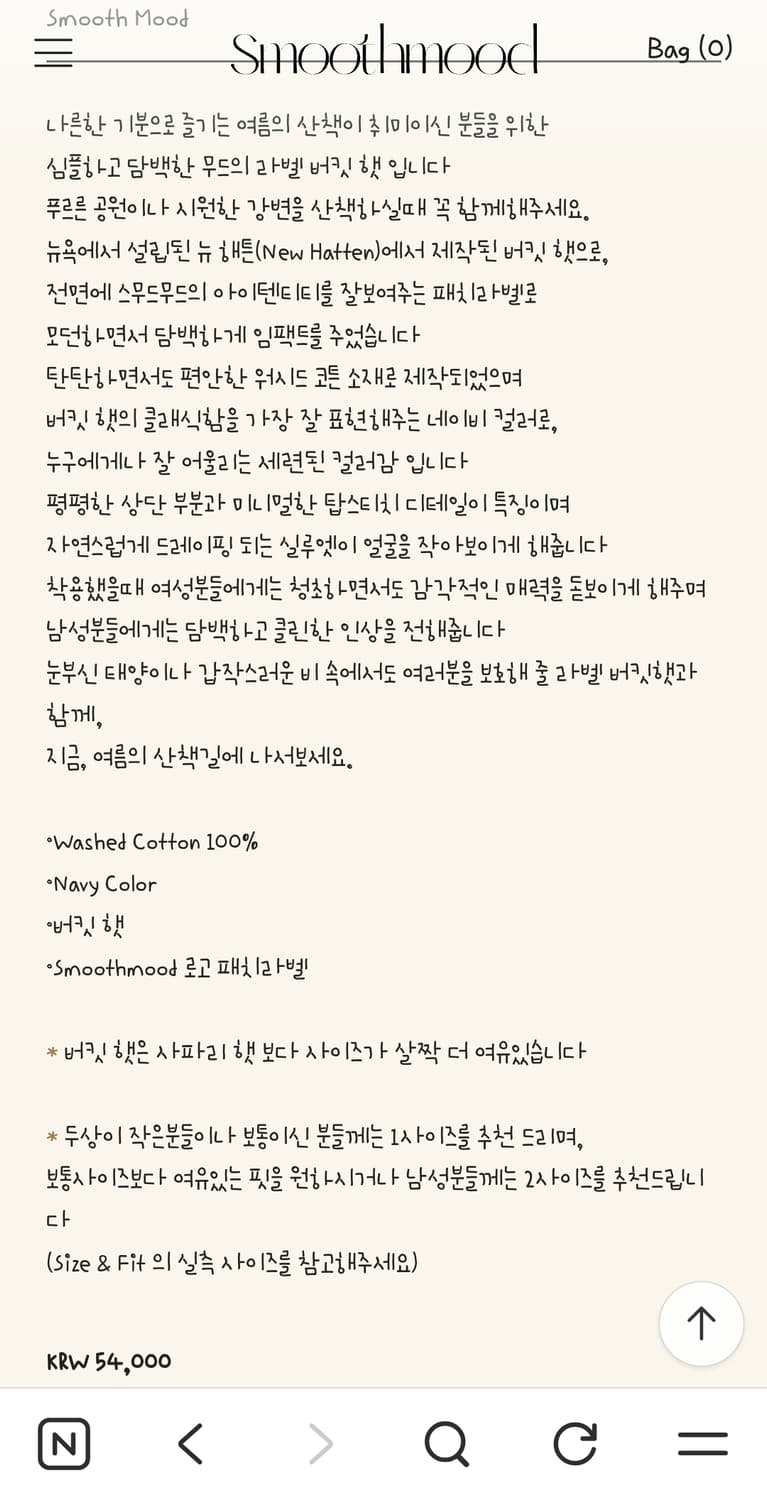 Smooth Mood
Smoothmood
Bag (0)
나른한 기분으로 즐기는 여름의 산책이 취미이신 분들을 위한
심플하고 담백한 무드의 라벨 버킷 햇 입니다
푸르른 공원이나 시원한 강변을 산책하실때 꼭 함께해주세요.
뉴욕에서 설립된 뉴 해튼(New Hatten)에서 제작된 버킷 햇으로,
전면에 스무드무드의 아이텐티티를 잘보여주는 패치라벨로
모던하면서 담백하게 임팩트를 주었습니다
탄탄하면서도 편안한 워시드 코튼 소재로 제작되었으며
버킷 햇의 클래식함을 가장 잘 표현해주는 네이비 컬러로,
누구에게나 잘 어울리는 세련된 컬러감 입니다
평평한 상단 부분과 미니멀한 탑스티치 디테일이 특징이며
자연스럽게 드레이핑 되는 실루엣이 얼굴을 작아보이게 해줍니다
착용했을때 여성분들에게는 청초하면서도 감각적인 매력을 돋보이게 해주며
남성분들에게는 담백하고 클린한 인상을 전해줍니다
눈부신 태양이나 갑작스러운 비 속에서도 여러분을 보호해 줄 라벨 버킷햇과
함께,
지금, 여름의 산책길에 나서보세요.
•Washed Cotton 100%
•Navy Color
•버킷 햇
•Smoothmood 로고 패치라벨
* 버킷 햇은 사파리 햇 보다 사이즈가 살짝 더 여유있습니다
* 두상이 작은분들이나 보통이신 분들께는 1사이즈를 추천 드리며,
보통사이즈보다 여유있는 핏을 원하시거나 남성분들께는 2사이즈를 추천드립니
다
(Size & Fit 의 실측 사이즈를 참고해주세요)
KRW 54,000
N